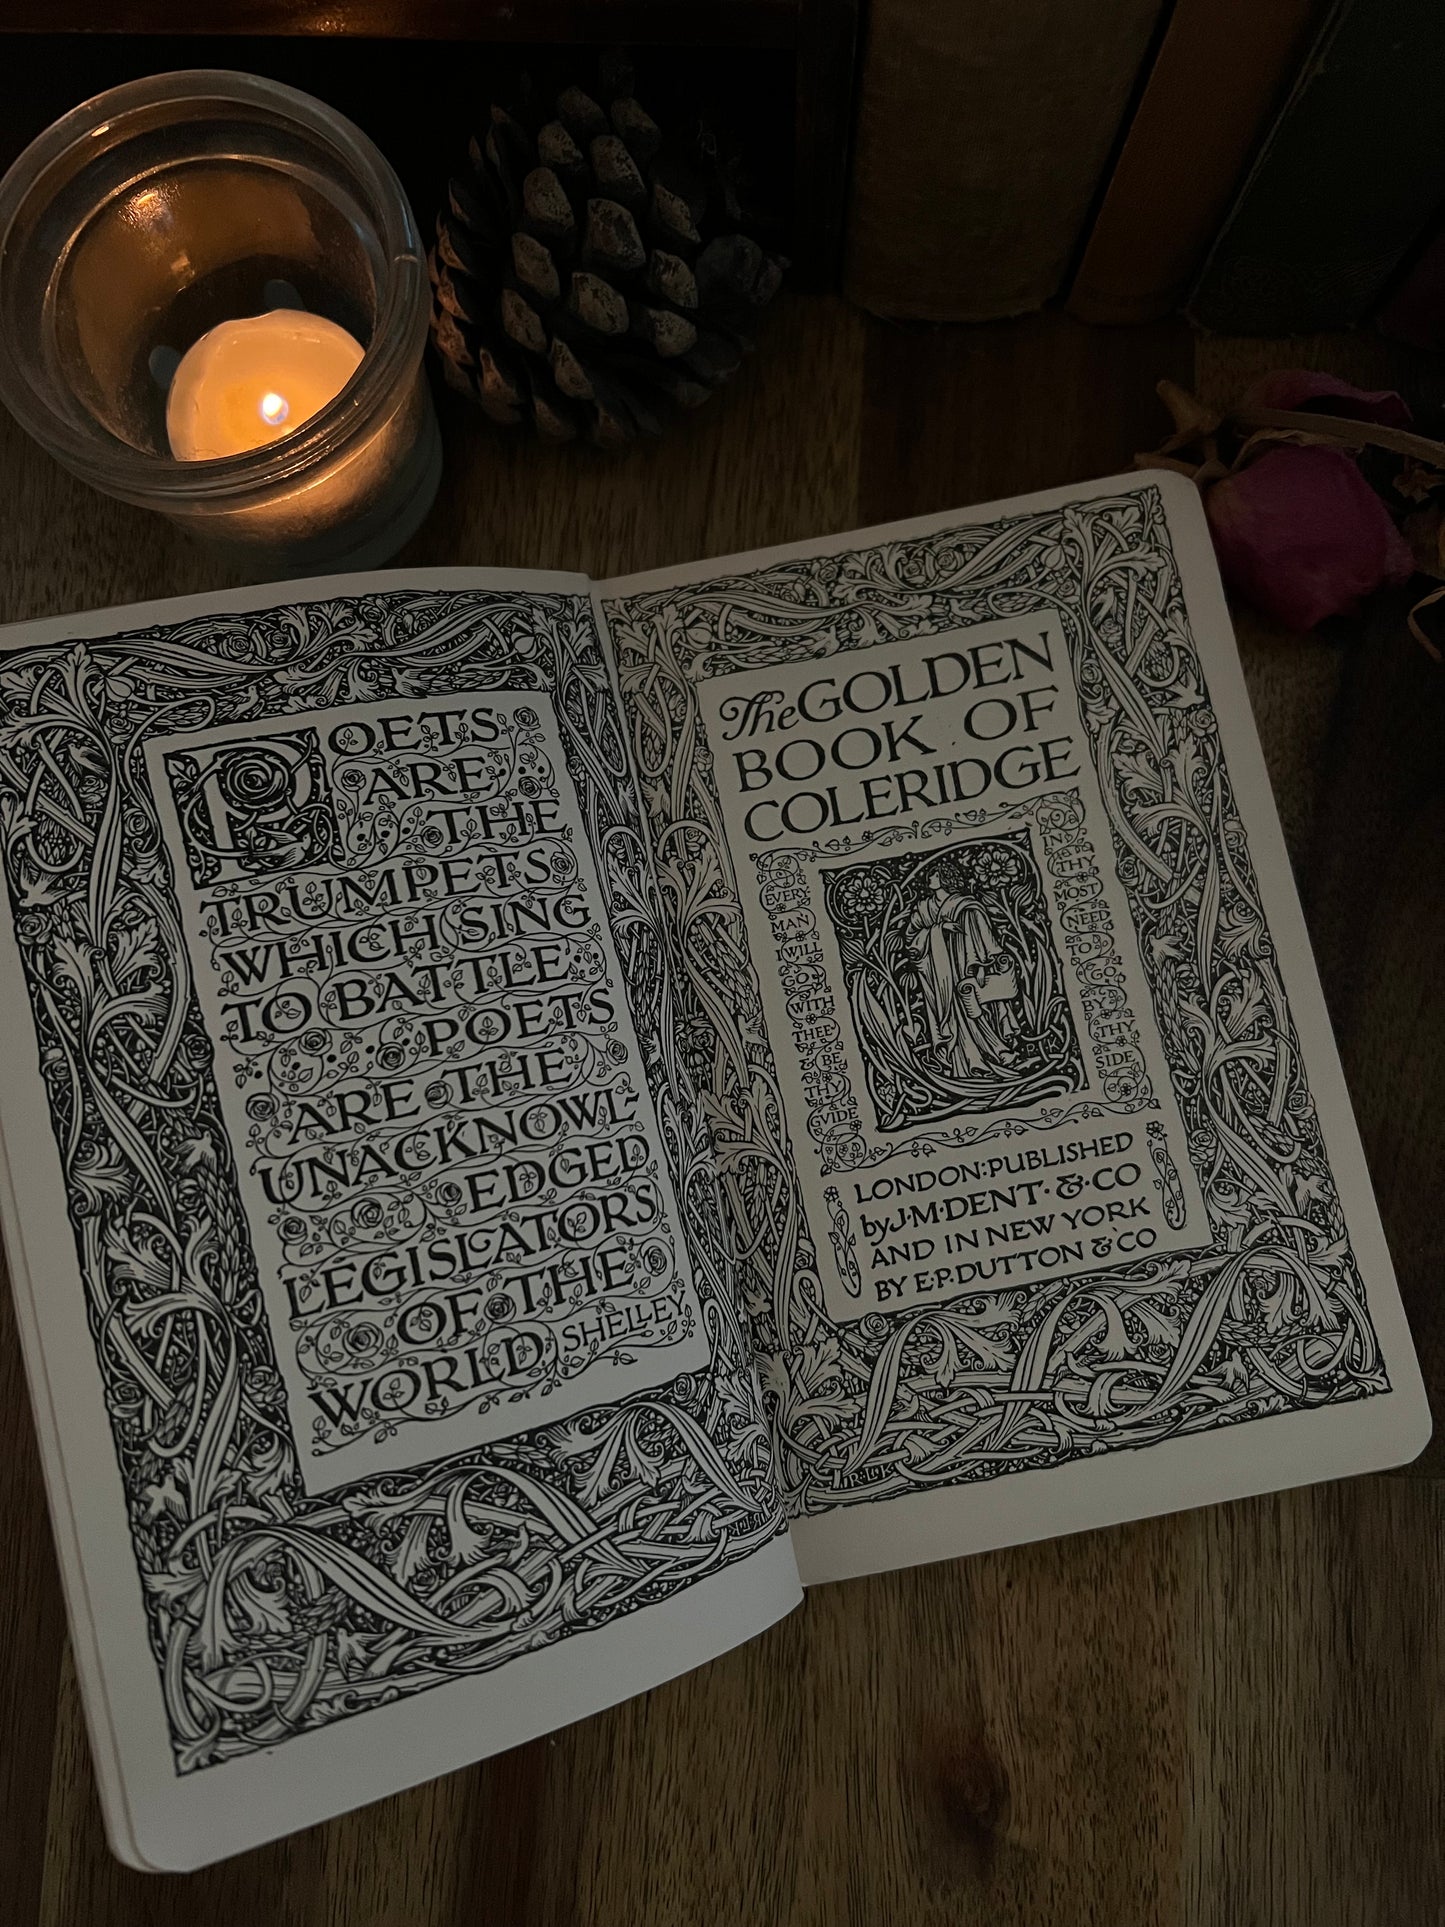 POETS
ARE
THE
TRUMPETS
WHICH SING
TO BATTLE
POETS
ARE THE
UNACKNOWL-
EDGED
LEGISLATORS
OF THE
WORLD SHELLEY
The GOLDEN
BOOK OF
COLERIDGE
EVERY
MAN
I WILL
GO
WITH
THEE
& BE
THY
GVIDE
IN
THY
MOST
NEED
TO
GO
BY
THY
SIDE
LONDON:PUBLISHED
by J·M·DENT·&·CO
AND IN NEW YORK
BY E·P·DUTTON & CO
R·L·K
R·L·K